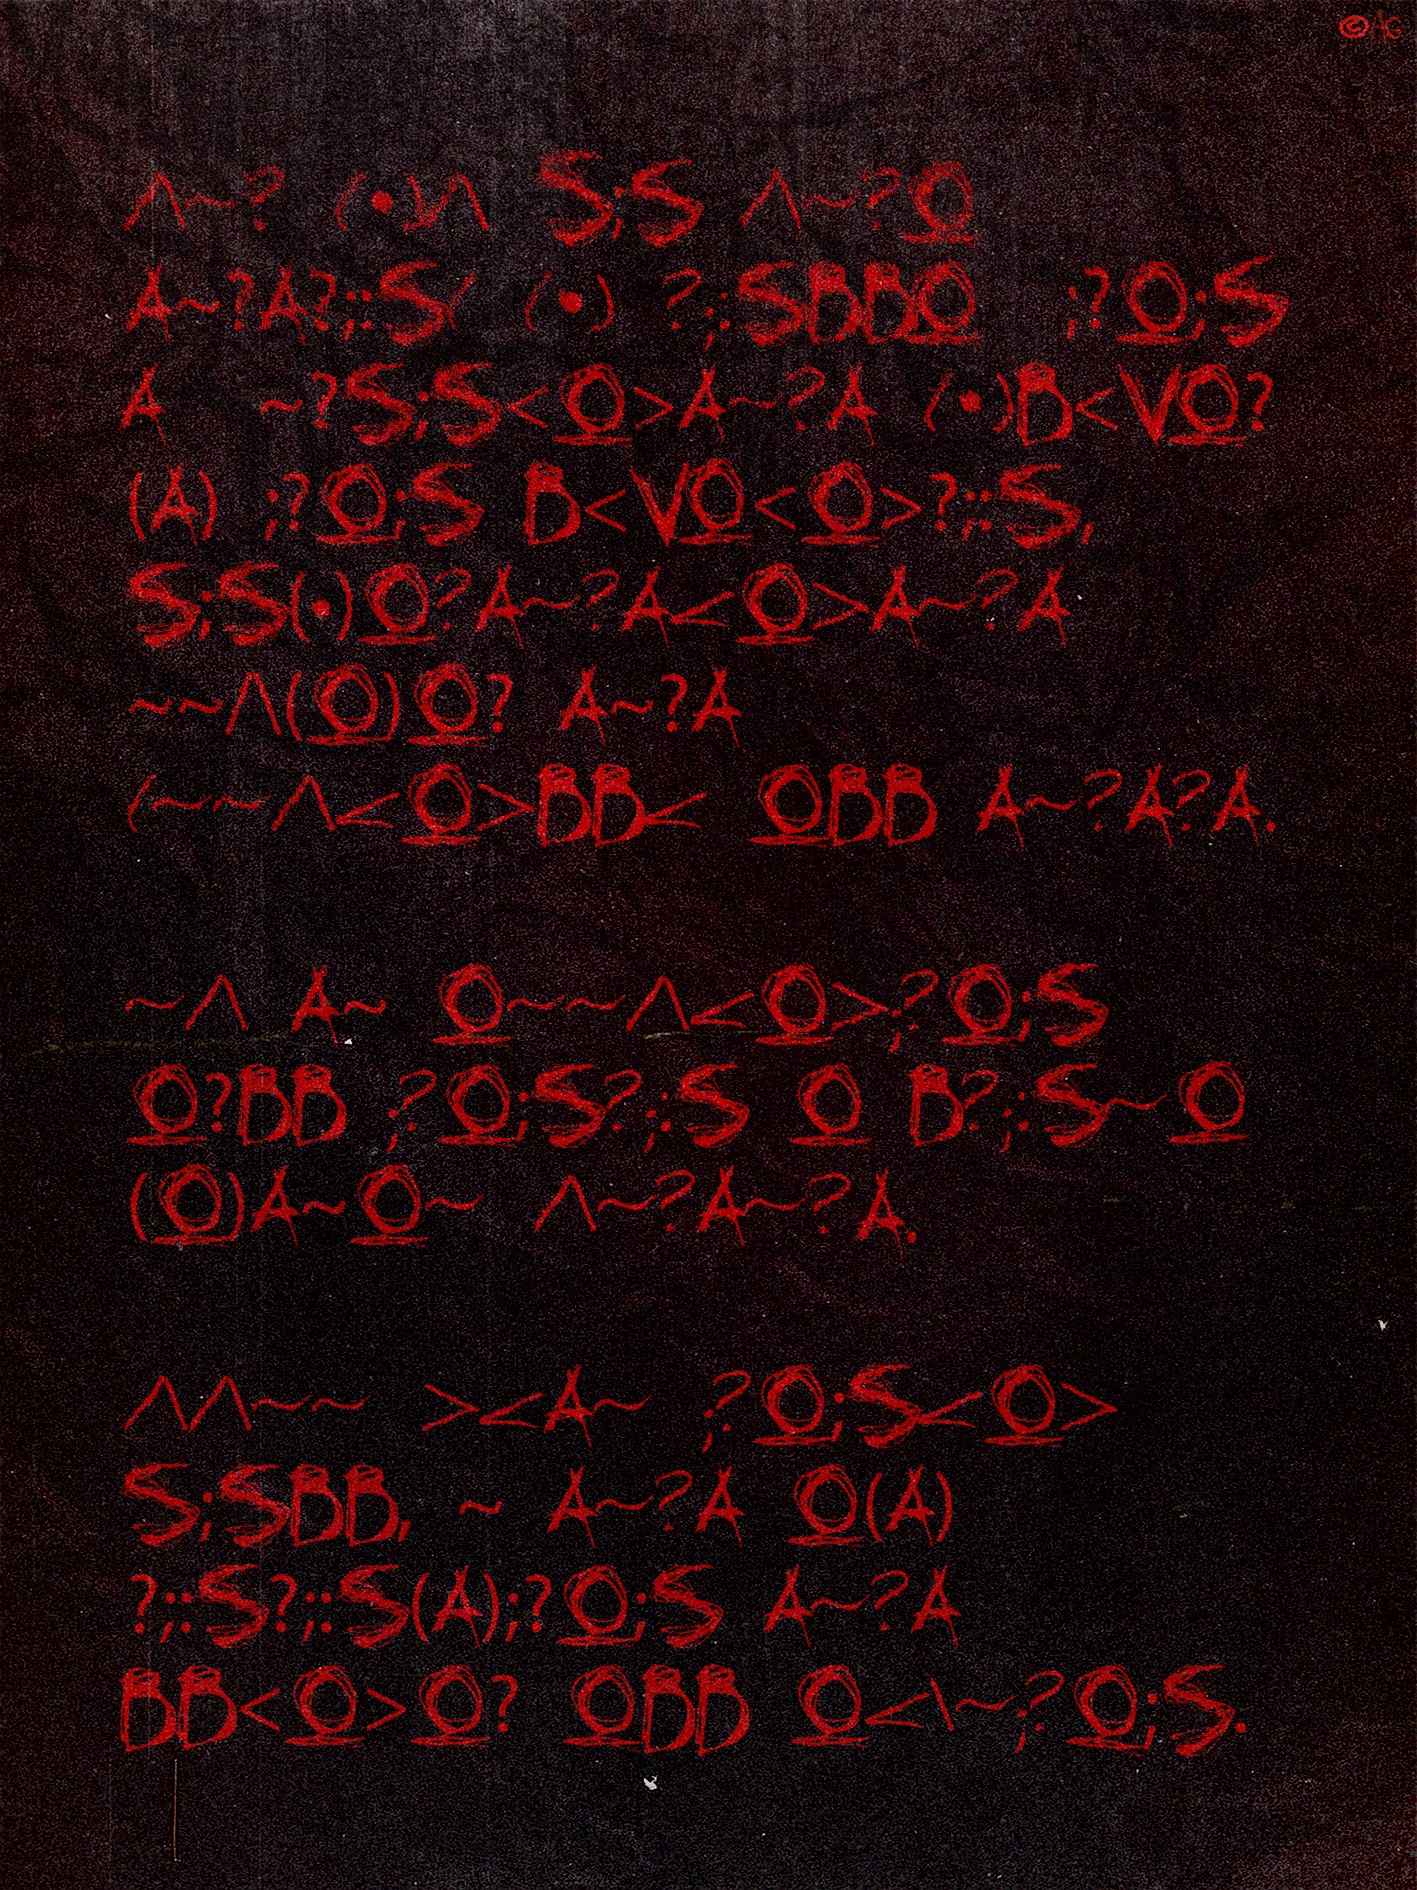 ©AG
Λ~? (•)Λ S;S Λ~?O̲
A~?A?;:S( (•) ?;:SBBO̲ ;?O̲;S
A ~?S;S<O̲>A~?A (•)B<VO̲?
(A) ;?O̲;S B<VO̲<O̲>?;:S,
S;S(•)O̲?A~?A<O̲>A~?A
~~Λ(O̲)O̲? A~?A
(~~Λ<O̲>BB< O̲BB A~?A?A.
~Λ A~ O̲~~Λ<O̲>;?O̲;S
O̲?BB ;?O̲;S?;:S O̲ B?;:S~O̲
(O̲)A~O̲~ Λ~?A~?A.
ΛΛ~~ ><A~ ;?O̲;S<O̲>
S;SBB, ~ A~?A O̲(A)
?;:S?;:S(A);?O̲;S A~?A
BB<O̲>O̲? O̲BB O̲<\~;?O̲;S.